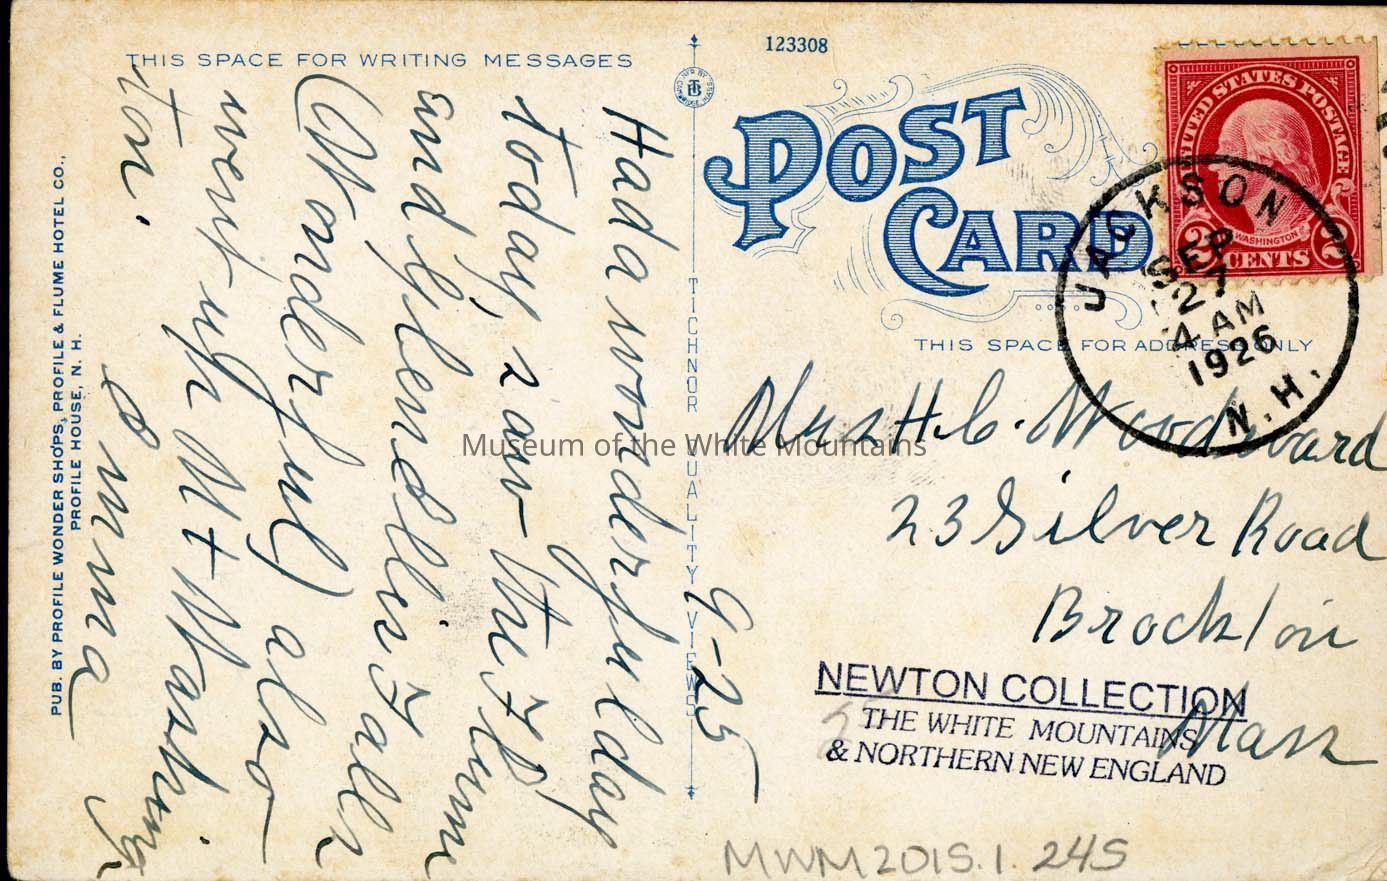 THIS SPACE FOR WRITING MESSAGES
9-25
Had a wonderful day
today, saw the Flume
and Glen Ellis Falls
(Wonderful) also
went up Mt Washing
ton.
Emma
PUB. BY PROFILE WONDER SHOPS, PROFILE & FLUME HOTEL CO.,
PROFILE HOUSE, N. H.
TICHNOR QUALITY VIEWS
123308
POST
CARD
UNITED STATES POSTAGE
WASHINGTON
2 CENTS 2
JACKSON
SEP
27
4 AM
1926
N.H.
THIS SPACE FOR ADDRESS ONLY
Mrs H. C. Woodward
23 Silver Road
Brockton
Mass
NEWTON COLLECTION
THE WHITE MOUNTAINS
& NORTHERN NEW ENGLAND
MWM2015.1.245
Museum of the White Mountains